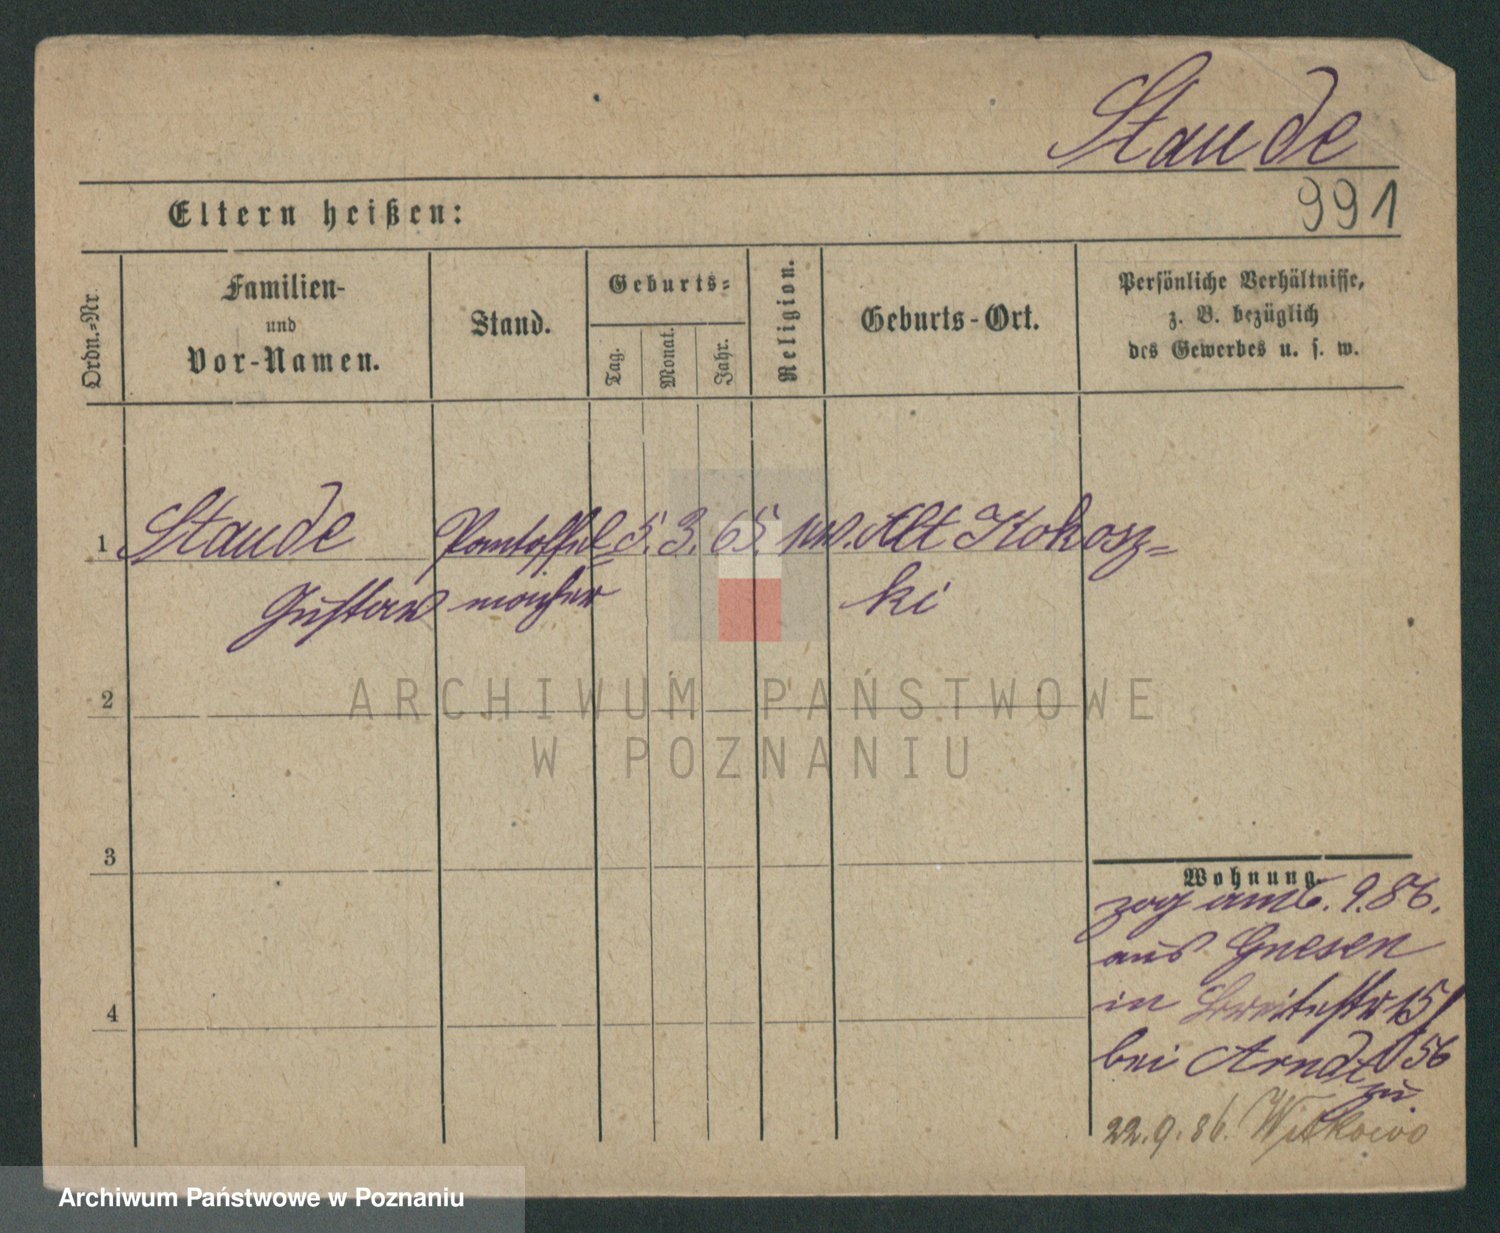 Staude
991
Eltern heißen:
Ordn.-Nr.
Familien-
und
Vor-Namen.
Stand.
Geburts-
Tag.
Monat.
Jahr.
Religion.
Geburts-Ort.
Persönliche Verhältnisse,
z. B. bezüglich
des Gewerbes u. s. w.
1 Staude Pantoffel- 5. 3. 65. Alt Kokosz-
Gustav macher ki
2
3
4
Wohnung.
zog am 6. 9. 86.
aus Gnesen
in Breitestr 15/
bei Arndt 56
zu
22.9.86. Witkowo
ARCHIWUM PAŃSTWOWE
W POZNANIU
Archiwum Państwowe w Poznaniu